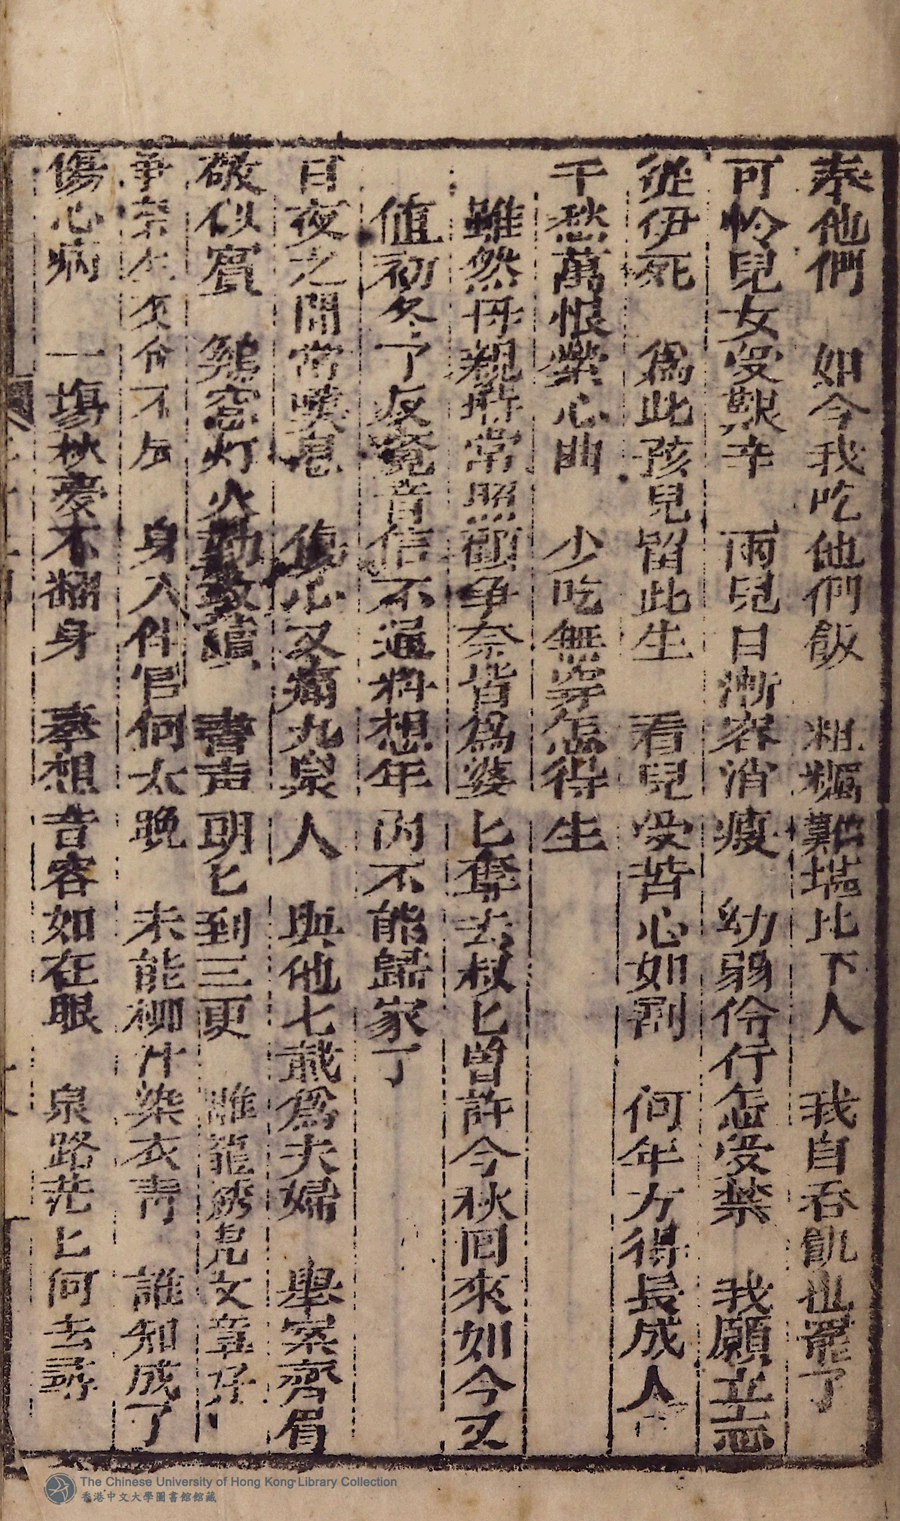 奉他們　如今我吃他們飯　粗糲難堪比下人　我自吞飢也罷了
可怜兒女受艱辛　兩兒日漸容消瘦　幼弱伶仃怎受禁　我願立志
從伊死　為此孩兒留此生　看兒受苦心如割　何年方得長成人
千愁萬恨縈心曲　少吃無穿怎得生
雖然母親時常照顧争奈皆為婆匕奪去叔匕曽許今秋囘來如今又
值初冬了反竟音信不通料想年內不能歸家了
日夜之間常嘆息　傷心又痛九泉人　與他七載為夫婦　舉案齊眉
敬似賓　鷄窓灯火勤教讀　書声朗匕到三更　雕龍綉虎文章好
争奈生來命不辰　身入伴官何太晚　未能柳汁染衣青　誰知成了
傷心病　一塲秋憂不翻身　夢想音容如在眼　泉路茫匕何去尋
The Chinese University of Hong Kong Library Collection
香港中文大學圖書館館藏